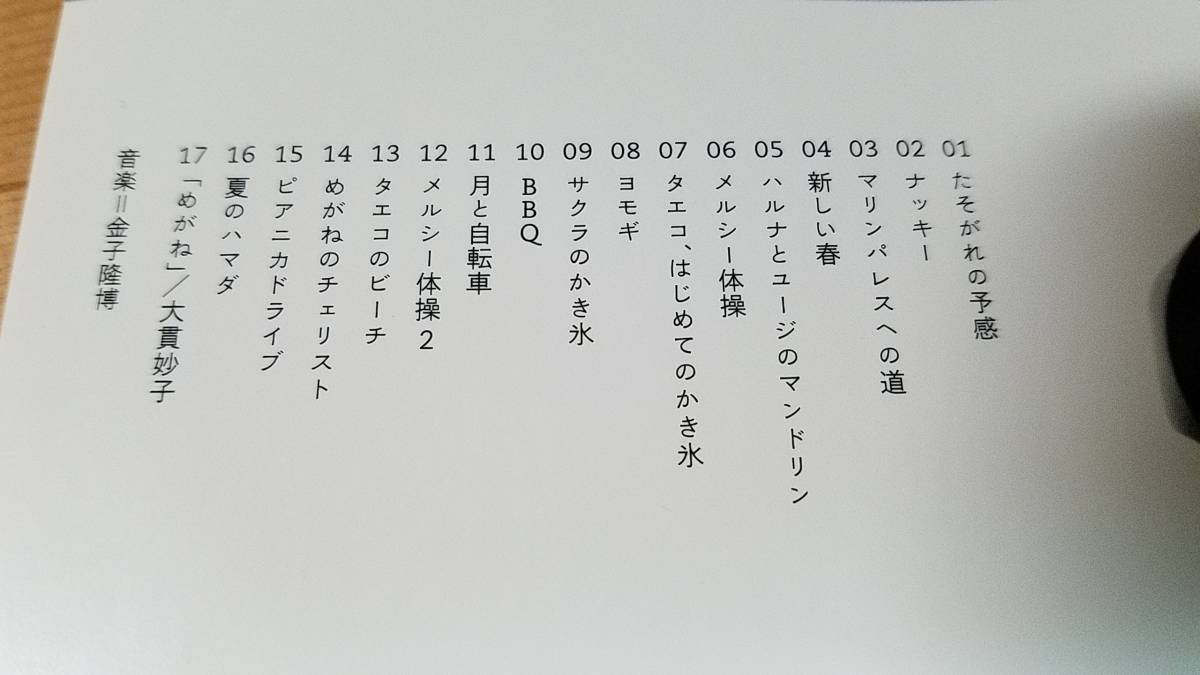 01 たそがれの予感
02 ナッキー
03 マリンパレスへの道
04 新しい春
05 ハルナとユージのマンドリン
06 メルシー体操
07 タエコ、はじめてのかき氷
08 ヨモギ
09 サクラのかき氷
10 BBQ
11 月と自転車
12 メルシー体操2
13 タエコのビーチ
14 めがねのチェリスト
15 ピアニカドライブ
16 夏のハマダ
17 「めがね」／大貫妙子
音楽＝金子隆博